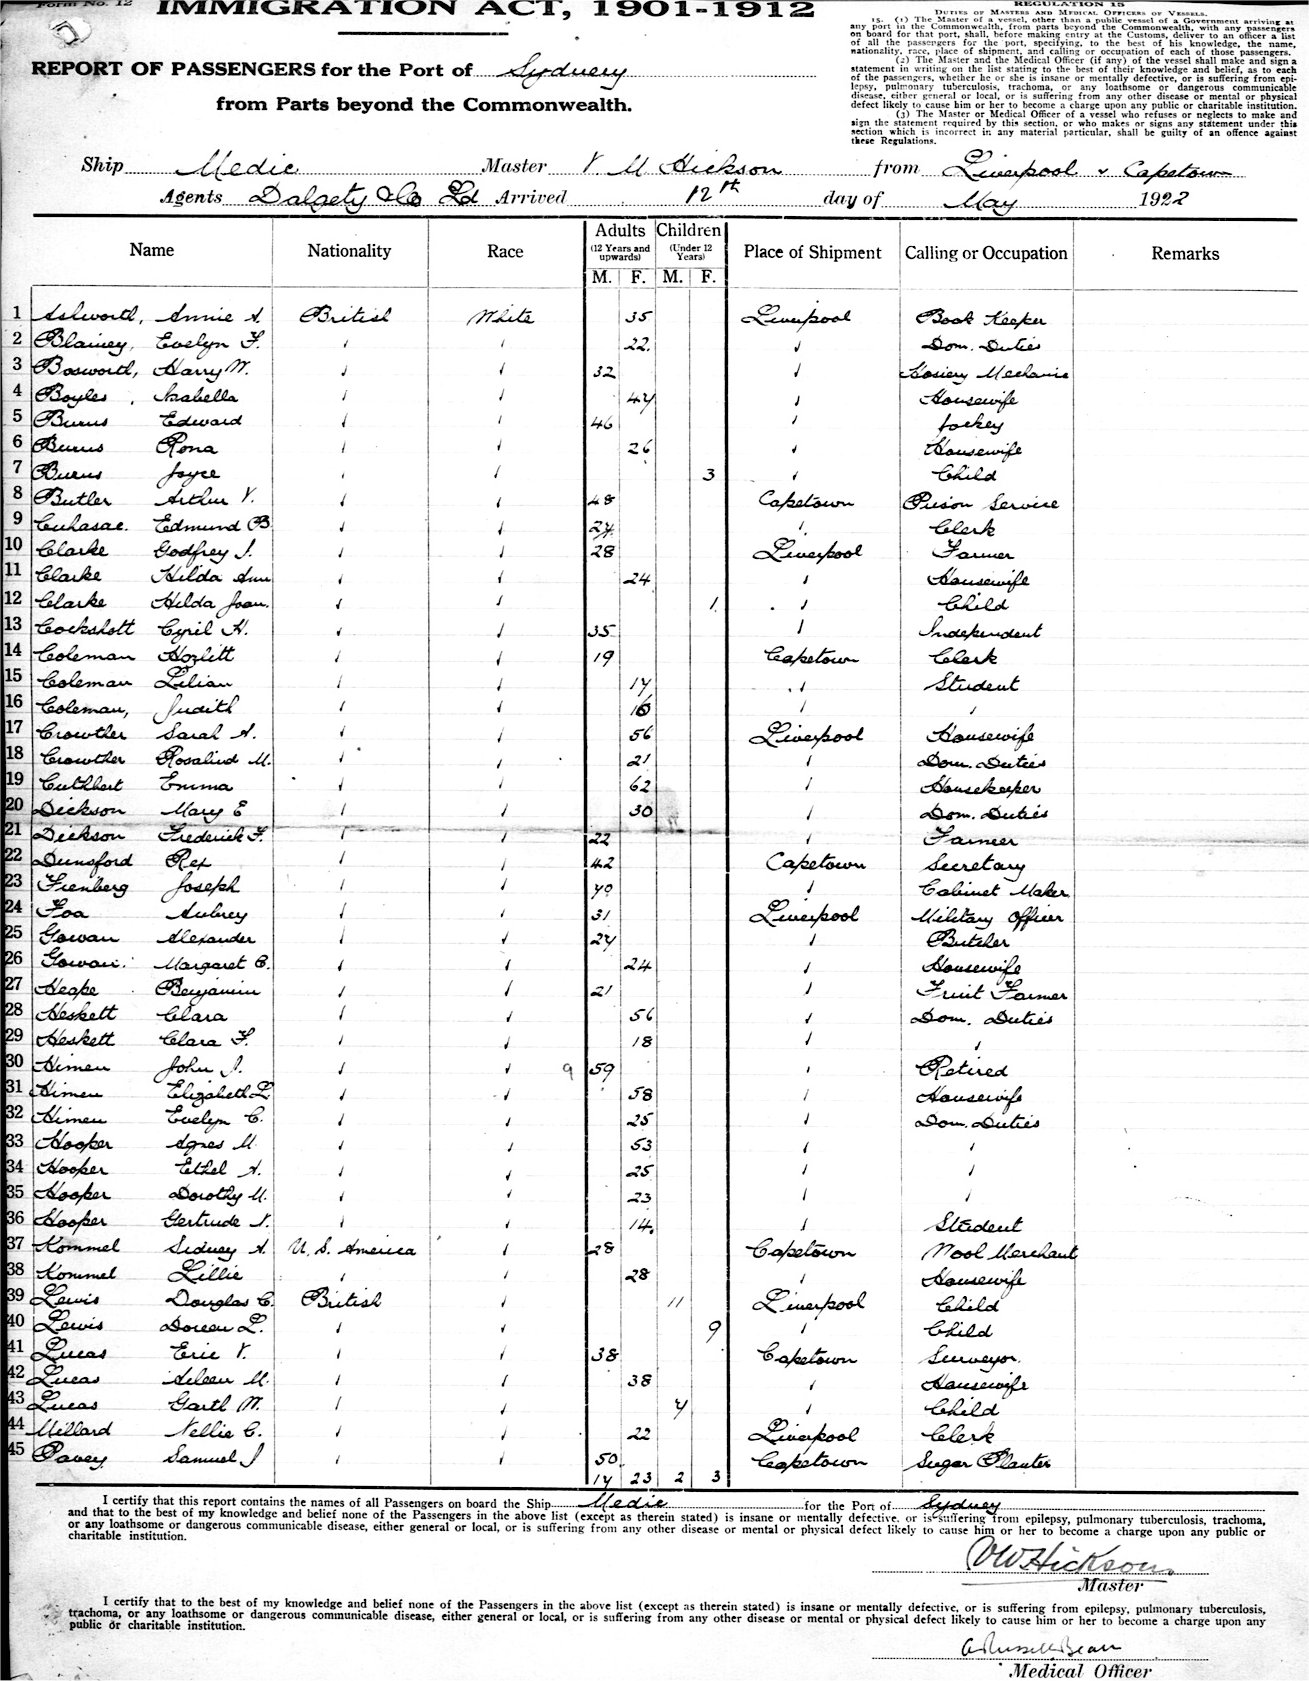 Form No. 12
IMMIGRATION ACT, 1901-1912
REGULATION 15
DUTIES OF MASTERS AND MEDICAL OFFICERS OF VESSELS.
15. (1) The Master of a vessel, other than a public vessel of a Government arriving at
any port in the Commonwealth, from parts beyond the Commonwealth, with any passengers
on board for that port, shall, before making entry at the Customs, deliver to an officer a list
of all the passengers for the port, specifying, to the best of his knowledge, the name,
nationality, race, place of shipment, and calling or occupation of each of those passengers.
(2) The Master and the Medical Officer (if any) of the vessel shall make and sign a
statement in writing on the list stating to the best of their knowledge and belief, as to each
of the passengers, whether he or she is insane or mentally defective, or is suffering from epi-
lepsy, pulmonary tuberculosis, trachoma, or any loathsome or dangerous communicable
disease, either general or local, or is suffering from any other disease or mental or physical
defect likely to cause him or her to become a charge upon any public or charitable institution.
(3) The Master or Medical Officer of a vessel who refuses or neglects to make and
sign the statement required by this section, or who makes or signs any statement under this
section which is incorrect in any material particular, shall be guilty of an offence against
these Regulations.
REPORT OF PASSENGERS for the Port of Sydney
from Parts beyond the Commonwealth.
Ship Medic Master V. M Hickson from Liverpool & Capetown
Agents Dalgety & Co Ld Arrived 12th day of May 1922
Name Nationality Race Adults (12 Years and upwards) Children (Under 12 Years) Place of Shipment Calling or Occupation Remarks
M. F. M. F.
1 Ashworth, Annie A. British White 35 Liverpool Book Keeper
2 Blainey, Evelyn F. 22 Dom. Duties
3 Bosworth, Harry W. 32 Hosiery Mechanic
4 Boyles, Isabella 44 Housewife
5 Burns Edward 46 Jockey
6 Burns Rona 26 Housewife
7 Burns Joyce 3 Child
8 Butler Arthur V. 48 Capetown Prison Service
9 Edmund B. Clerk
10 Clarke Godfrey J. 28 Liverpool Farmer
11 Clarke Hilda Ann 24 Housewife
12 Clarke Hilda Joan. 1 Child
13 Cockshott Cyril H. 35 Independent
14 Coleman Hozlitt 19 Capetown Clerk
15 Coleman Lilian 17 Student
16 Coleman, Judith 16
17 Crowther Sarah A. 56 Liverpool Housewife
18 Crowther Rosalind M. 21 Dom. Duties
19 Cuthbert Emma 62 Housekeeper
20 Dickson Mary E 30 Dom. Duties
21 Dickson Frederick F. 22 Farmer
22 Dunsford Rex 42 Capetown Secretary
23 Fienberg Joseph 40 Cabinet Maker
24 Foa Aubrey 31 Liverpool Military Officer
25 Gowan Alexander 24 Butcher
26 Gowan. Margaret C. 24 Housewife
27 Heape Benjamin 21 Fruit Farmer
28 Heskett Clara 56 Dom. Duties
29 Heskett Clara F. 18
30 Himen John J. 9 59 Retired
31 Himen Elizabeth L 58 Housewife
32 Himen Evelyn C. 25 Dom. Duties
33 Hooper Agnes M. 53
34 Hooper Ethel A. 25
35 Hooper Dorothy M. 23
36 Hooper Gertrude N. 14. Student
37 Kommel Sidney A. U. S. America 28 Capetown Wool Merchant
38 Kommel Lillie 28 Housewife
39 Lewis Douglas C. British 11 Liverpool Child
40 Lewis Doreen L. 9 Child
41 Lucas Eric V. 38 Capetown Surveyor.
42 Lucas Aileen M. 38 Housewife
43 Lucas Garth W. 4 Child
44 Millard Nellie C. 22 Liverpool Clerk
45 Pavey Samuel J 50. Capetown Sugar Planter
17 23 2 3
I certify that this report contains the names of all Passengers on board the Ship Medic for the Port of Sydney
and that to the best of my knowledge and belief none of the Passengers in the above list (except as therein stated) is insane or mentally defective. or is suffering from epilepsy, pulmonary tuberculosis, trachoma,
or any loathsome or dangerous communicable disease, either general or local, or is suffering from any other disease or mental or physical defect likely to cause him or her to become a charge upon any public or
charitable institution.
VW Hickson.
Master
I certify that to the best of my knowledge and belief none of the Passengers in the above list (except as therein stated) is insane or mentally defective, or is suffering from epilepsy, pulmonary tuberculosis,
trachoma, or any loathsome or dangerous communicable disease, either general or local, or is suffering from any other disease or mental or physical defect likely to cause him or her to become a charge upon any
public or charitable institution.
Medical Officer